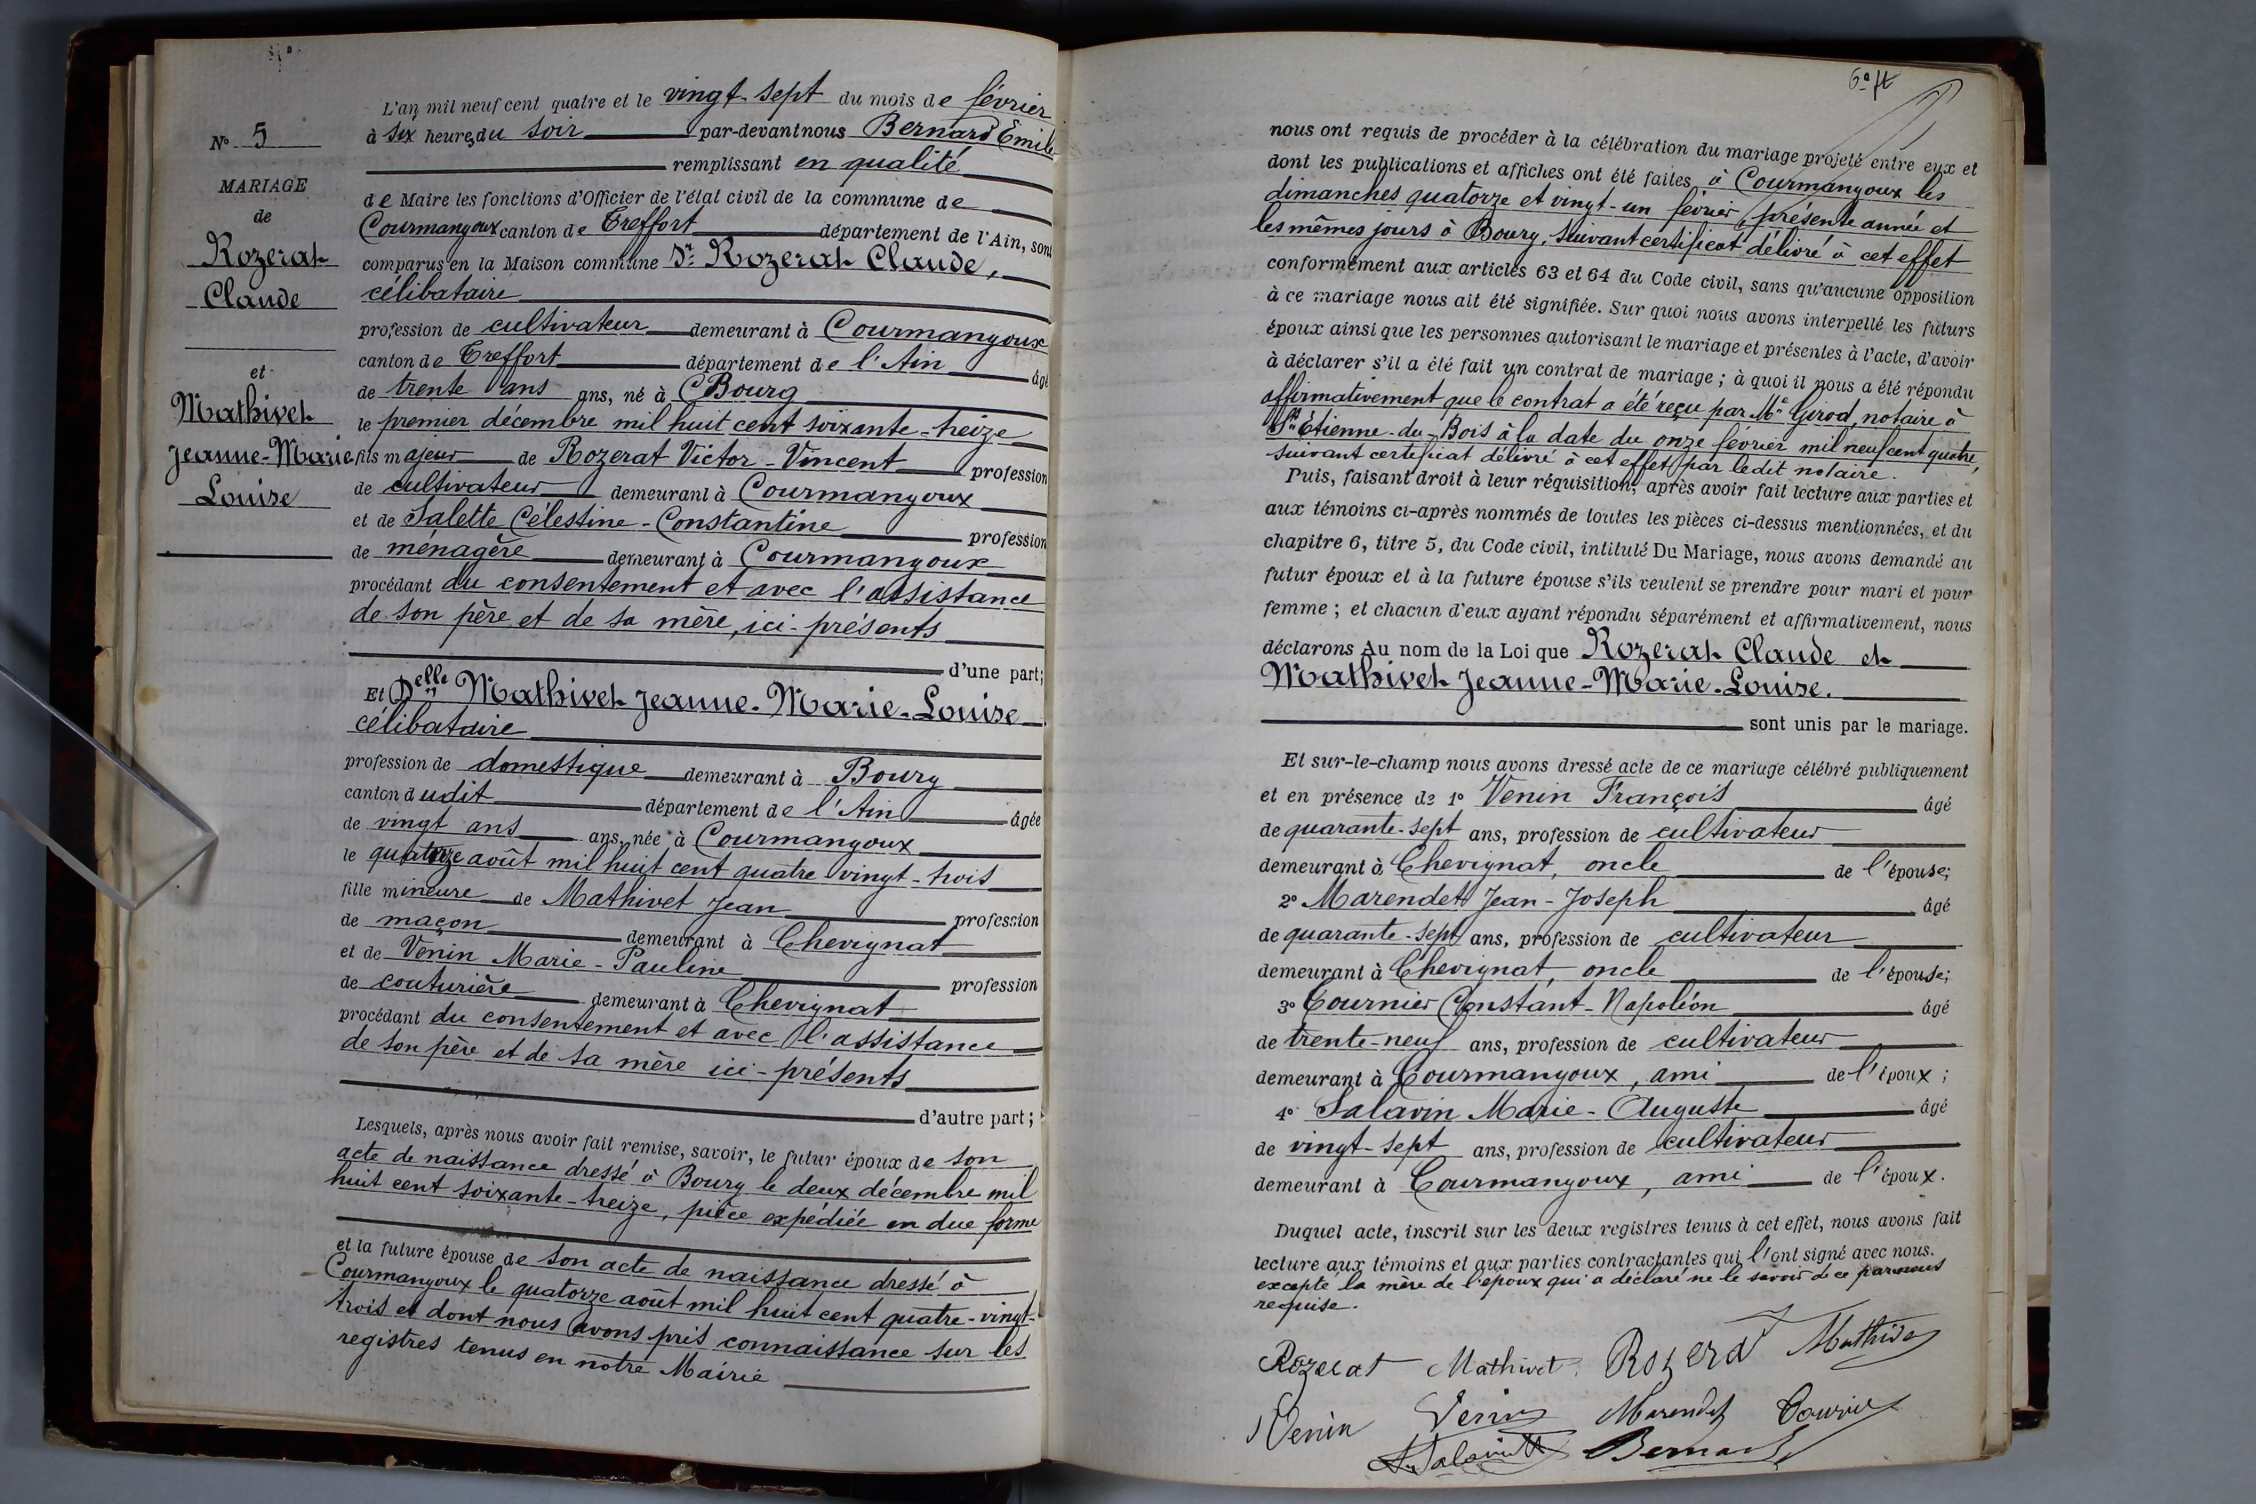 N° 5
MARIAGE
de
Rozerat
Claude
et
Mathivet
Jeanne-Marie
Louise
L'an mil neuf cent quatre et le vingt-sept du mois de février
à six heures du soir par-devant nous Bernard Emile
remplissant en qualité
de Maire les fonctions d'Officier de l'état civil de la commune de
Courmangoux canton de Treffort département de l'Ain, sont
comparus en la Maison commune Sr. Rozerat Claude,
célibataire
profession de cultivateur demeurant à Courmangoux
canton de Treffort département de l'Ain âgé
de trente ans ans, né à Bourg
le premier décembre mil huit cent soixante-treize
fils majeur de Rozerat Victor-Vincent profession
de cultivateur demeurant à Courmangoux
et de Salette Célestine-Constantine profession
de ménagère demeurant à Courmangoux
procédant du consentement et avec l'assistance
de son père et de sa mère, ici-présents
d'une part;
Et Delle Mathivet Jeanne-Marie-Louise
célibataire
profession de domestique demeurant à Bourg
canton dudit département de l'Ain âgée
de vingt ans ans, née à Courmangoux
le quatorze août mil huit cent quatre vingt-trois
fille mineure de Mathivet Jean profession
de maçon demeurant à Chevignat
et de Venin Marie-Pauline profession
de couturière demeurant à Chevignat
procédant du consentement et avec l'assistance
de son père et de sa mère ici-présents
d'autre part;
Lesquels, après nous avoir fait remise, savoir, le futur époux de son
acte de naissance dressé à Bourg le deux décembre mil
huit cent soixante-treize, pièce expédiée en due forme
et la future épouse de son acte de naissance dressé à
Courmangoux le quatorze août mil huit cent quatre-vingt-
trois et dont nous avons pris connaissance sur les
registres tenus en notre Mairie
nous ont requis de procéder à la célébration du mariage projeté entre eux et
dont les publications et affiches ont été faites à Courmangoux les
dimanches quatorze et vingt-un février, présente année et
les mêmes jours à Bourg, suivant certificat délivré à cet effet
conformément aux articles 63 et 64 du Code civil, sans qu'aucune opposition
à ce mariage nous ait été signifiée. Sur quoi nous avons interpellé les futurs
époux ainsi que les personnes autorisant le mariage et présentes à l'acte, d'avoir
à déclarer s'il a été fait un contrat de mariage; à quoi il nous a été répondu
affirmativement que le contrat a été reçu par Me Girod, notaire à
St. Étienne-du-Bois à la date du onze février mil neuf cent quatre,
suivant certificat délivré à cet effet par ledit notaire.
Puis, faisant droit à leur réquisition, après avoir fait lecture aux parties et
aux témoins ci-après nommés de toutes les pièces ci-dessus mentionnées, et du
chapitre 6, titre 5, du Code civil, intitulé Du Mariage, nous avons demandé au
futur époux et à la future épouse s'ils veulent se prendre pour mari et pour
femme; et chacun d'eux ayant répondu séparément et affirmativement, nous
déclarons Au nom de la Loi que Rozerat Claude et
Mathivet Jeanne-Marie-Louise.
sont unis par le mariage.
Et sur-le-champ nous avons dressé acte de ce mariage célébré publiquement
et en présence de 1° Venin François âgé
de quarante-sept ans, profession de cultivateur
demeurant à Chevignat, oncle de l'épouse;
2° Marendet Jean-Joseph âgé
de quarante-sept ans, profession de cultivateur
demeurant à Chevignat, oncle de l'épouse;
3° Tournier Constant-Napoléon âgé
de trente-neuf ans, profession de cultivateur
demeurant à Courmangoux, ami de l'époux;
4° Salavin Marie-Auguste âgé
de vingt-sept ans, profession de cultivateur
demeurant à Courmangoux, ami de l'époux.
Duquel acte, inscrit sur les deux registres tenus à cet effet, nous avons fait
lecture aux témoins et aux parties contractantes qui l'ont signé avec nous.
excepté la mère de l'époux qui a déclaré ne le savoir de ce par nous
requise.
Rozerat Mathivet Rozerat Mathivet
Venin Venin Marendet
Salavin Bernard